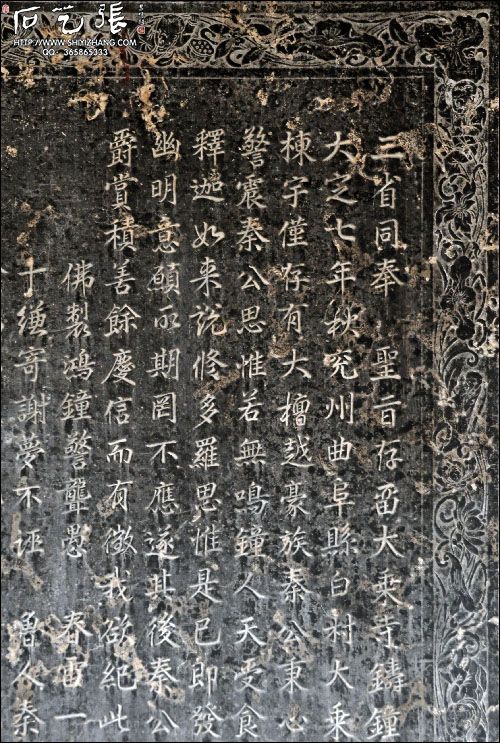 張艺石
HTTP://WWW.SHIYIZHANG.COM
QQ - 365865333
三省同奉 聖旨存畱大乘寺鑄鐘
大定七年秋兖州曲阜縣白村大乘
棟宇僅存有大檀越豪族秦公秉心
警震秦公思惟若無鳴鐘人天受食
釋迦如来說修多羅思惟是已即發
幽明意願所期罔不應遂其後秦公
爵賞積善餘慶信而有徵我欲紀此
佛製鴻鐘警聾愚 春雷一
寄謝夢不誣 魯人秦